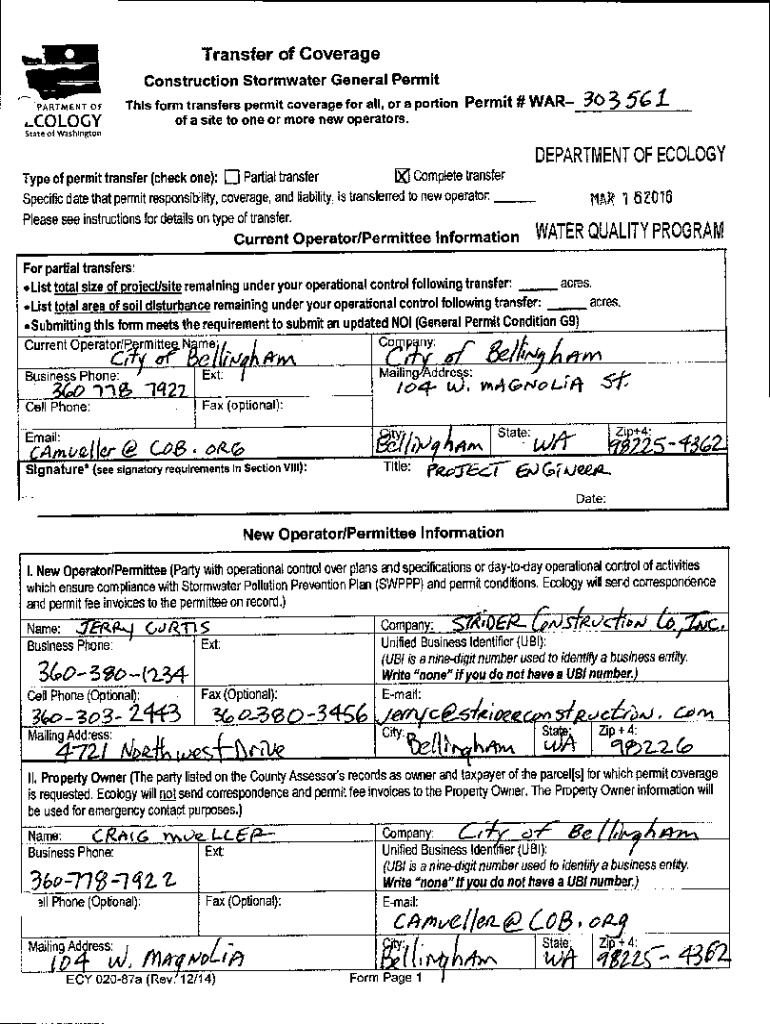 Transfer of Coverage
Construction Stormwater General Permit
PARTMENT OF
COLOGY
State of Washington
This form transfers permit coverage for all, or a portion Permit # WAR- 303561
of a site to one or more new operators.
DEPARTMENT OF ECOLOGY
Type of permit transfer (check one): Partial transfer X Complete transfer
Specific date that permit responsibility, coverage, and liability, is transferred to new operator:
MAR 162016
Please see instructions for details on type of transfer.
WATER QUALITY PROGRAM
Current Operator/Permittee Information
For partial transfers:
•List total size of project/site remaining under your operational control following transfer: ______ acres.
•List total area of soil disturbance remaining under your operational control following transfer: ______ acres.
•Submitting this form meets the requirement to submit an updated NOI (General Permit Condition G9)
Current Operator/Permittee Name: City of Bellingham
Company: City of Bellingham
Business Phone: 360 778 7922
Ext:
Mailing Address: 104 W. MAGNOLIA St.
Cell Phone:
Fax (optional):
Email: CAmueller@COB.ORG
City: Bellingham
State: WA
Zip+4: 98225-4362
Signature* (see signatory requirements in Section VIII):
Title: PROJECT ENGINEER
Date:
New Operator/Permittee Information
I. New Operator/Permittee (Party with operational control over plans and specifications or day-to-day operational control of activities
which ensure compliance with Stormwater Pollution Prevention Plan (SWPPP) and permit conditions. Ecology will send correspondence
and permit fee invoices to the permittee on record.)
Name: JERRY CURTIS
Company: STRIDER Construction Co, Inc.
Business Phone: 360-380-1234
Ext:
Unified Business Identifier (UBI):
(UBI is a nine-digit number used to identify a business entity.
Write "none" if you do not have a UBI number.)
Cell Phone (Optional): 360-303-2443
Fax (Optional): 360-380-3456
E-mail: jerryc@striderconstruction.com
Mailing Address: 4721 Northwest Drive
City: Bellingham
State: WA
Zip + 4: 98226
II. Property Owner (The party listed on the County Assessor's records as owner and taxpayer of the parcel[s] for which permit coverage
is requested. Ecology will not send correspondence and permit fee invoices to the Property Owner. The Property Owner information will
be used for emergency contact purposes.)
Name: CRAIG MUELLER
Company: City of Bellingham
Business Phone: 360-778-7922
Ext:
Unified Business Identifier (UBI):
(UBI is a nine-digit number used to identify a business entity.
Write "none" if you do not have a UBI number.)
ell Phone (Optional):
Fax (Optional):
E-mail: CAmueller@COB.ORg
Mailing Address: 104 W. MAGNOLIA
City: Bellingham
State: WA
Zip + 4: 98225-4362
ECY 020-87a (Rev. 12/14)
Form Page 1